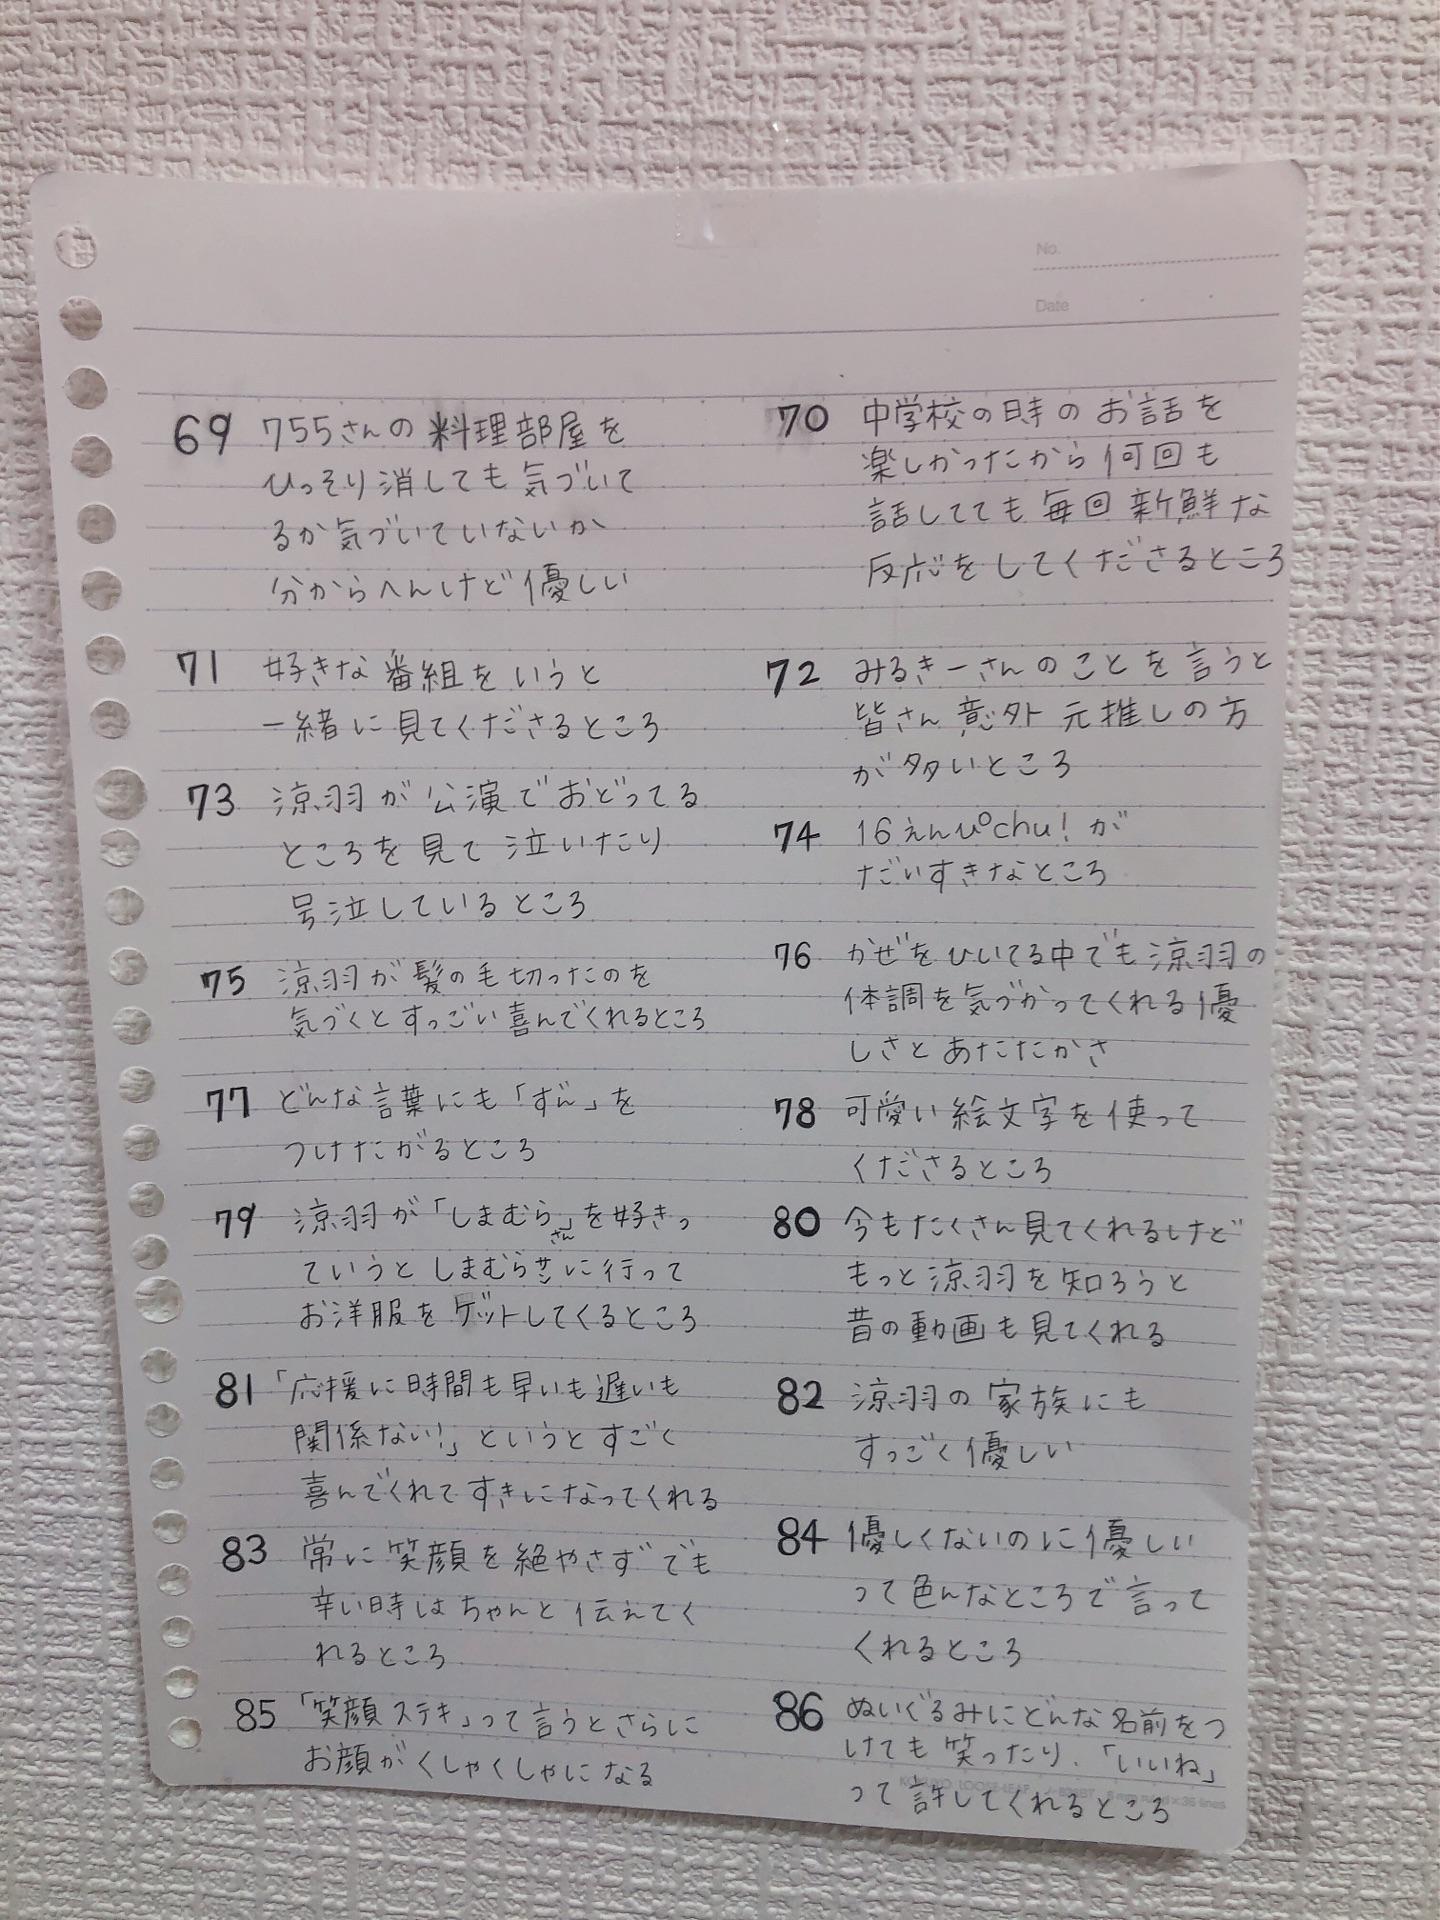 No.
Date
69 755さんの料理部屋を
ひっそり消しても気づいて
るか気づいていないか
分からへんけど優しい
70 中学校の時のお話を
楽しかったから何回も
話してても毎回新鮮な
反応をしてくださるところ
71 好きな番組をいうと
一緒に見てくださるところ
72 みるきーさんのことを言うと
皆さん意外元推しの方
が多いところ
73 涼羽が公演でおどってる
ところを見て泣いたり
号泣しているところ
74 16えんぴchu!が
だいすきなところ
75 涼羽が髪の毛切ったのを
気づくとすっごい喜んでくれるところ
76 かぜをひいてる中でも涼羽の
体調を気づかってくれる優
しさとあたたかさ
77 どんな言葉にも「ずん」を
つけたがるところ
78 可愛い絵文字を使って
くださるところ
79 涼羽が「しまむらさん」を好きっ
ていうとしまむらサンに行って
お洋服をゲットしてくるところ
80 今もたくさん見てくれるけど
もっと涼羽を知ろうと
昔の動画も見てくれる
81 「応援に時間も早いも遅いも
関係ない!」というとすごく
喜んでくれてすきになってくれる
82 涼羽の家族にも
すっごく優しい
83 常に笑顔を絶やさずでも
辛い時はちゃんと伝えてく
れるところ
84 優しくないのに優しい
って色んなところで言って
くれるところ
85 「笑顔ステキ」って言うとさらに
お顔がくしゃくしゃになる
86 ぬいぐるみにどんな名前をつ
けても笑ったり、「いいね」
って許してくれるところ
LOOSE-LEAF